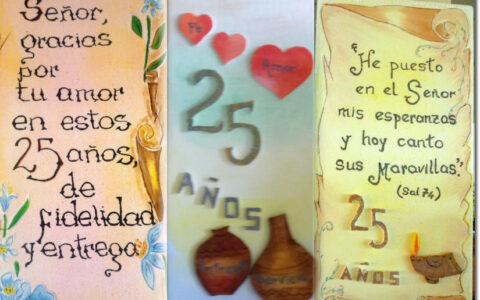 Señor,
gracias
por
tu amor
en estos
25 años,
de
fidelidad
y entrega
Fe
Amor
25
AÑOS
"He puesto
en el Señor
mis esperanzas
y hoy canto
sus Maravillas".
(Sal 74)
25
AÑOS